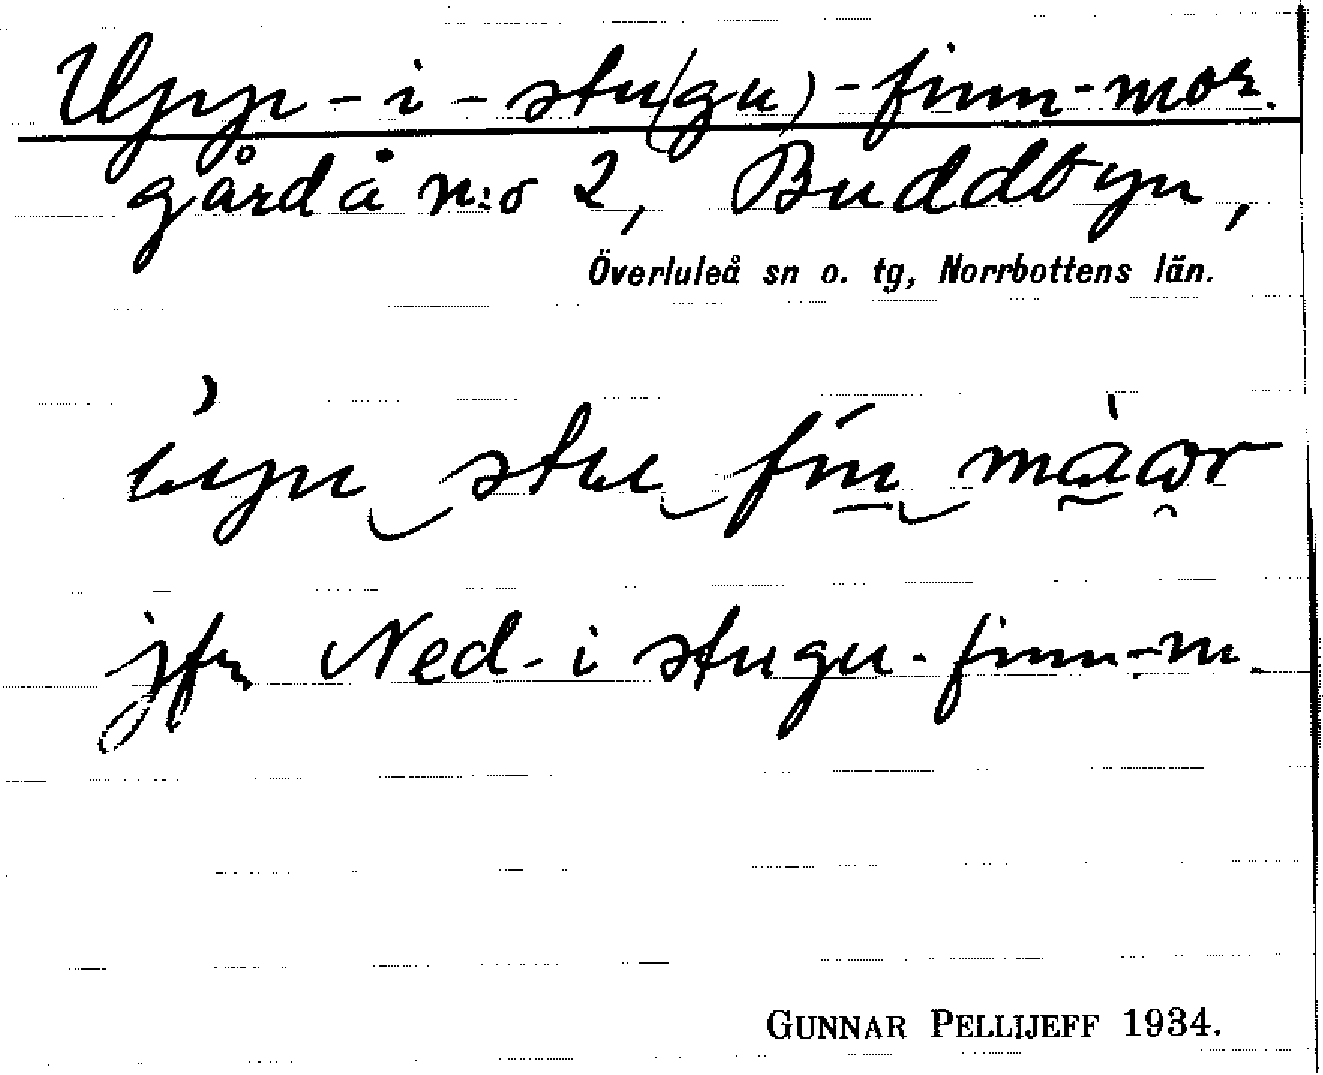 Upp-i-stu(gu)-finn-mor.
gård å n:o 2, Buddbyn,
Överluleå sn o. tg, Norrbottens län.
jfr Ned-i stugu-finn-m.
GUNNAR PELLIJEFF 1934.